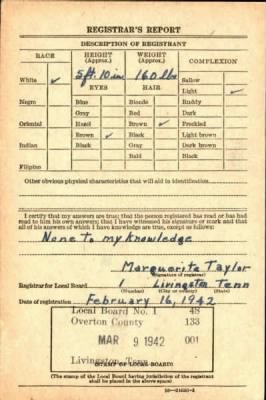 REGISTRAR'S REPORT
DESCRIPTION OF REGISTRANT
RACE HEIGHT (Approx.) WEIGHT (Approx.) COMPLEXION
White ✓ 5 ft. 10 in 160 lbs Sallow
EYES HAIR Light ✓
Negro Blue Blonde Ruddy
Gray Red Dark
Oriental Hazel Brown ✓ Freckled
Brown ✓ Black Light brown
Indian Black Gray Dark brown
Bald Black
Filipino
Other obvious physical characteristics that will aid in identification
I certify that my answers are true; that the person registered has read or has had
read to him his own answers; that I have witnessed his signature or mark and that
all of his answers of which I have knowledge are true, except as follows:
None to my knowledge
Marguerite Taylor
(Signature of registrar)
Registrar for Local Board 1 Livingston Tenn
(Number) (City or county) (State)
Date of registration February 16, 1942
Local Board No. 1 48
Overton County 133
MAR 9 1942 001
Livingston, Tenn
(STAMP OF LOCAL BOARD)
(The stamp of the Local Board having jurisdiction of the registrant
shall be placed in the above space)